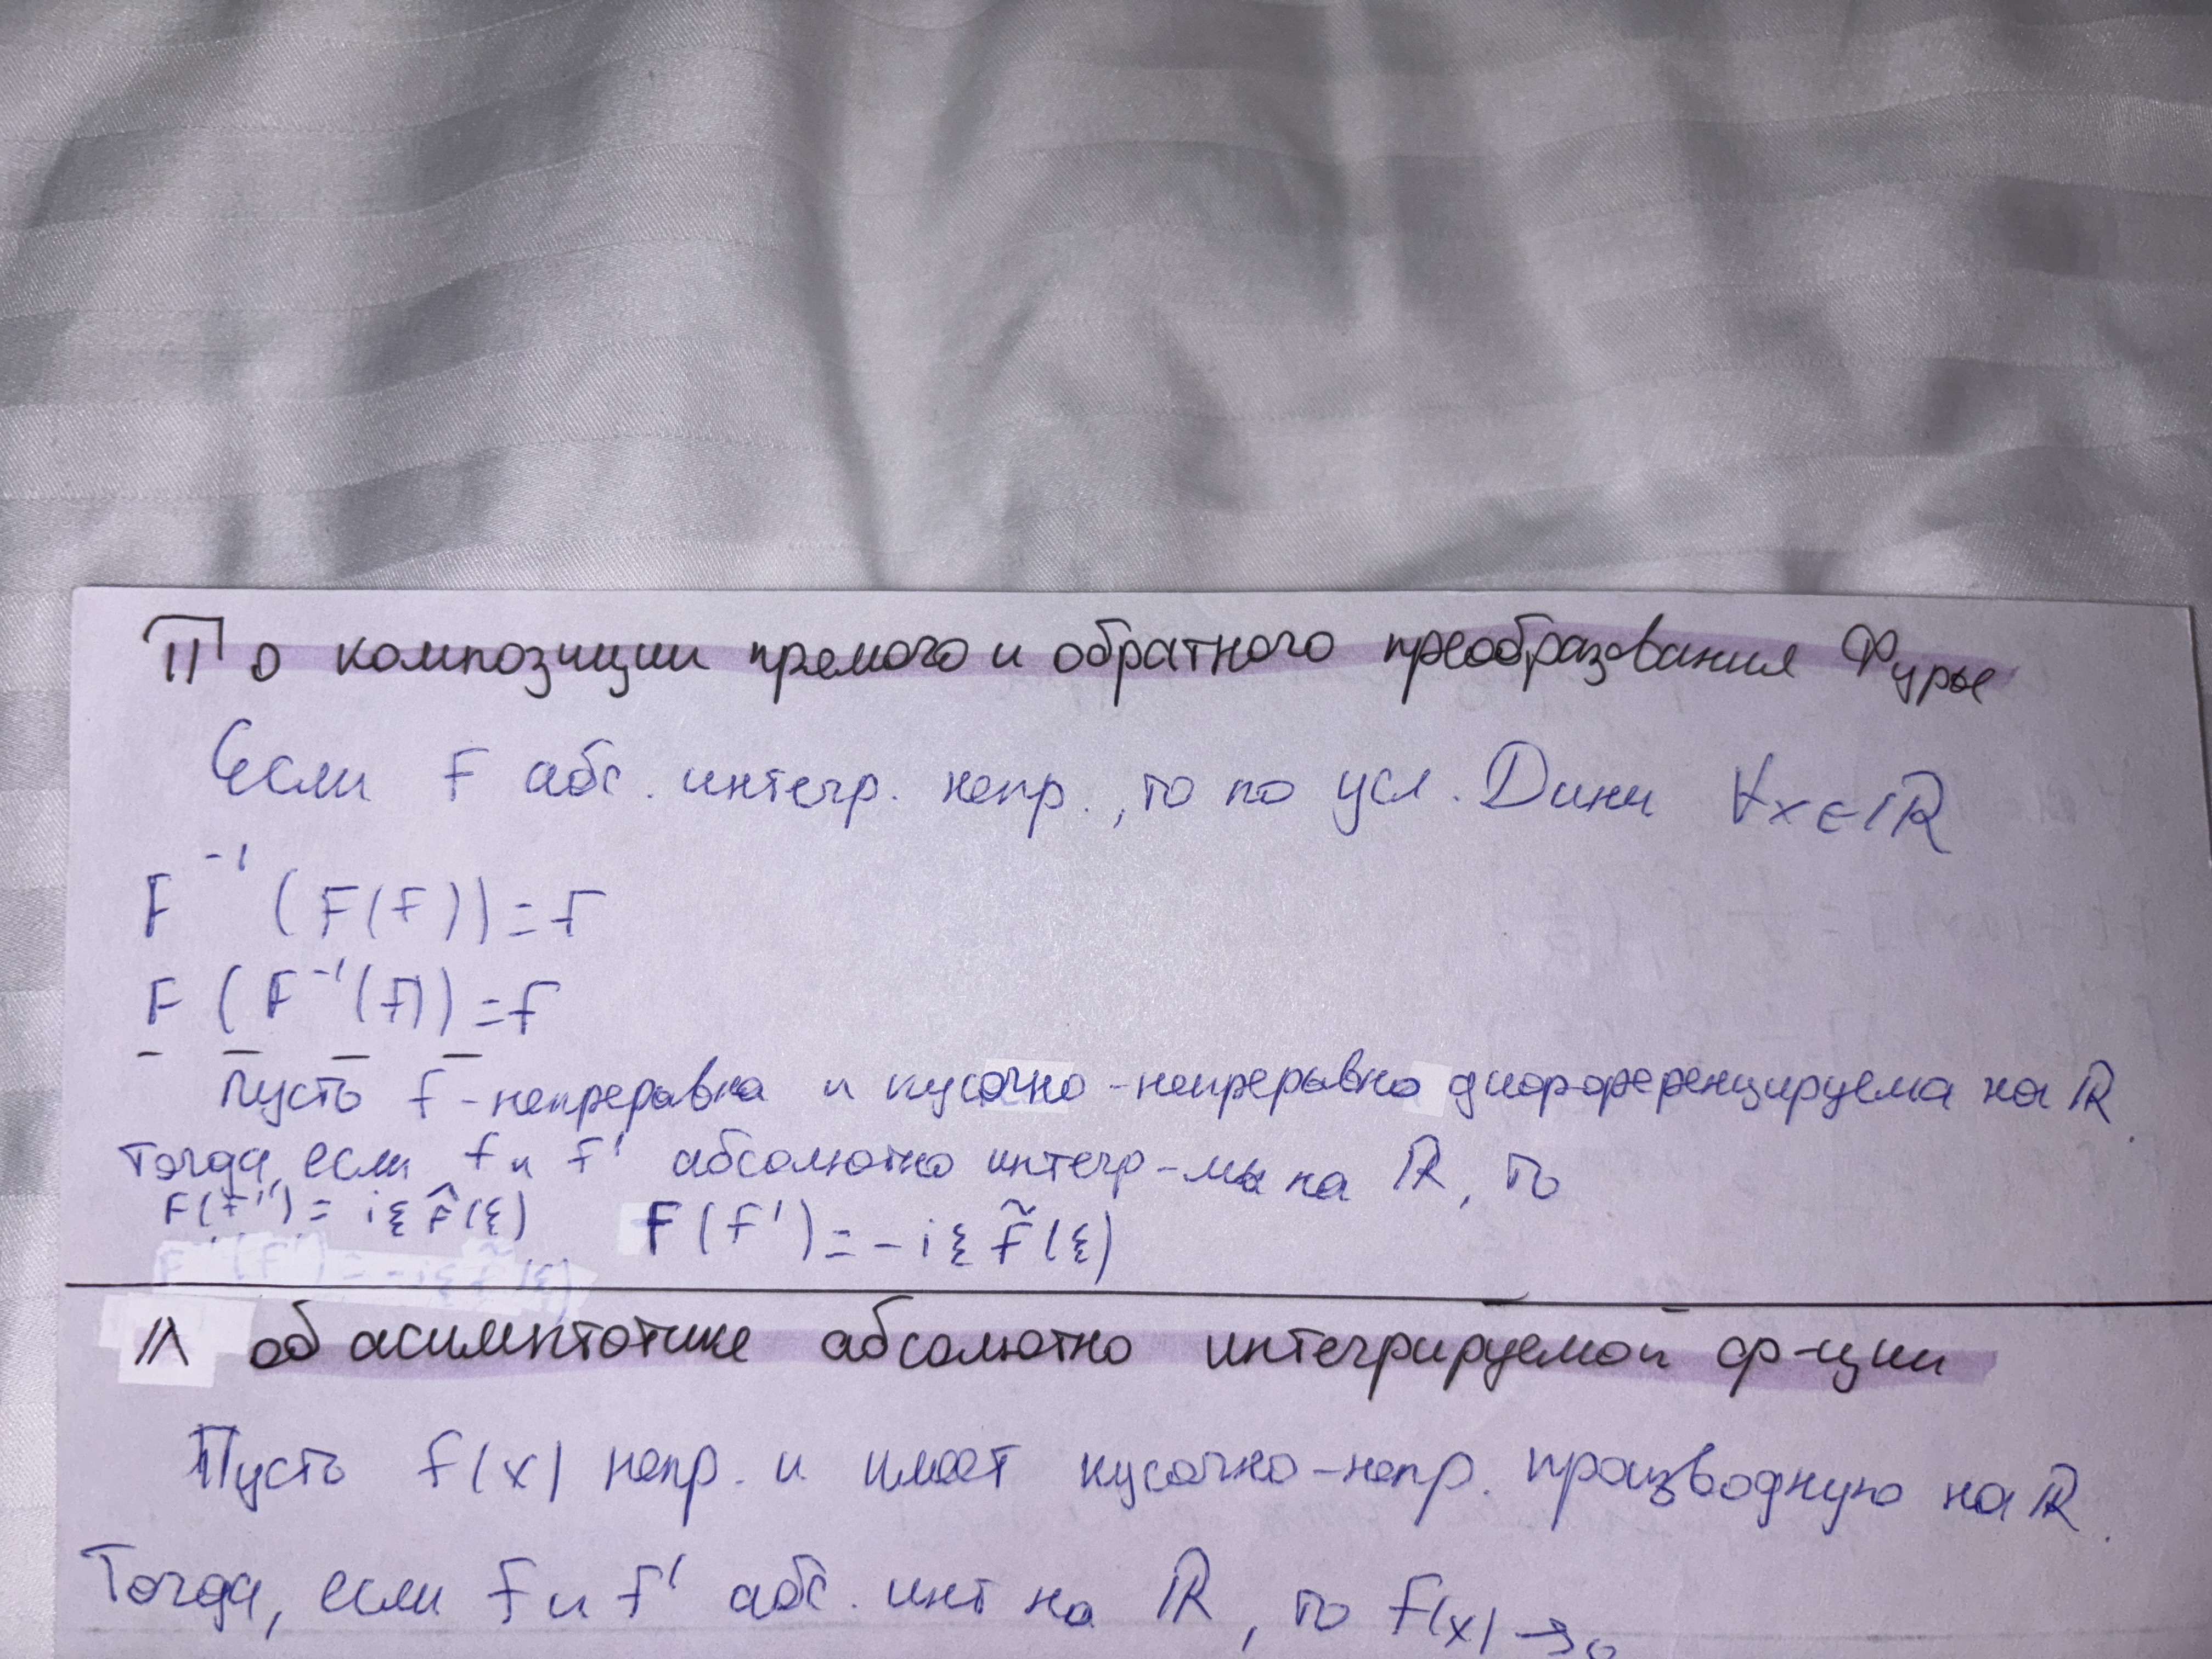 П о композиции премого и обратного преобразования Фурье
Если f абс. интегр. непр., то по усл. Дини ∀x∈ℝ
F⁻¹(F(f))=f
F(F⁻¹(f))=f
Пусть f-непреравна и кусочно-непрерывно дифференцируема на ℝ.
Тогда, если f и f' абсолютно интегр-мы на ℝ, то
F(f') = iξ f̂(ξ) F(f') = -iξ f̃(ξ)
Л об асимптотике абсолютно интегрируемой ф-ции
Пусть f(x) непр. и имеет кусочно-непр. производную на ℝ.
Тогда, если f и f' абс. инт на ℝ, то f(x)→0